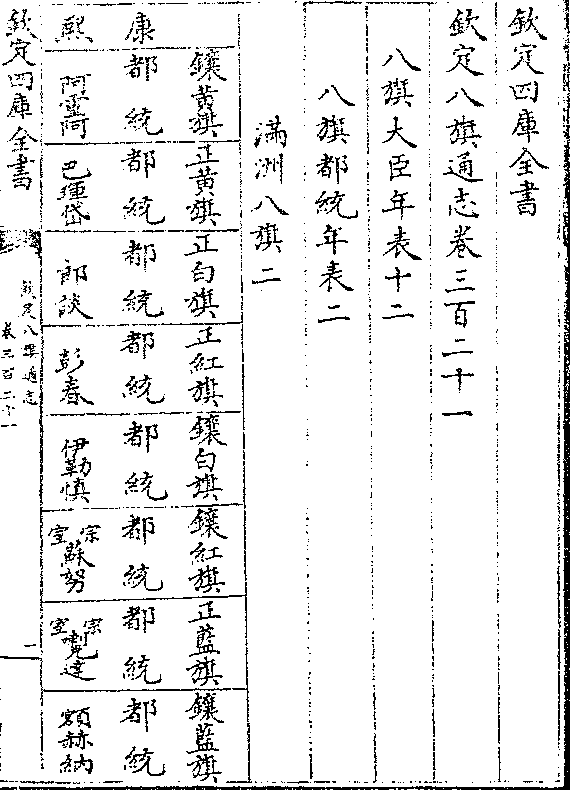 欽定四庫全書
欽定八旗通志卷三百二十一
八旗大臣年表十二
八旗都統年表二
滿洲八旗二
鑲黃旗
正黃旗
正白旗
正紅旗
鑲白旗
鑲紅旗
正藍旗
鑲藍旗
康
都統
都統
都統
都統
都統
都統
都統
都統
熙
阿靈阿
巴琿岱
郎談
彭春
伊勒慎
宗室蘇努
宗室 達
額赫納
欽定四庫全書
欽定八旗通志
卷三百二十一
一